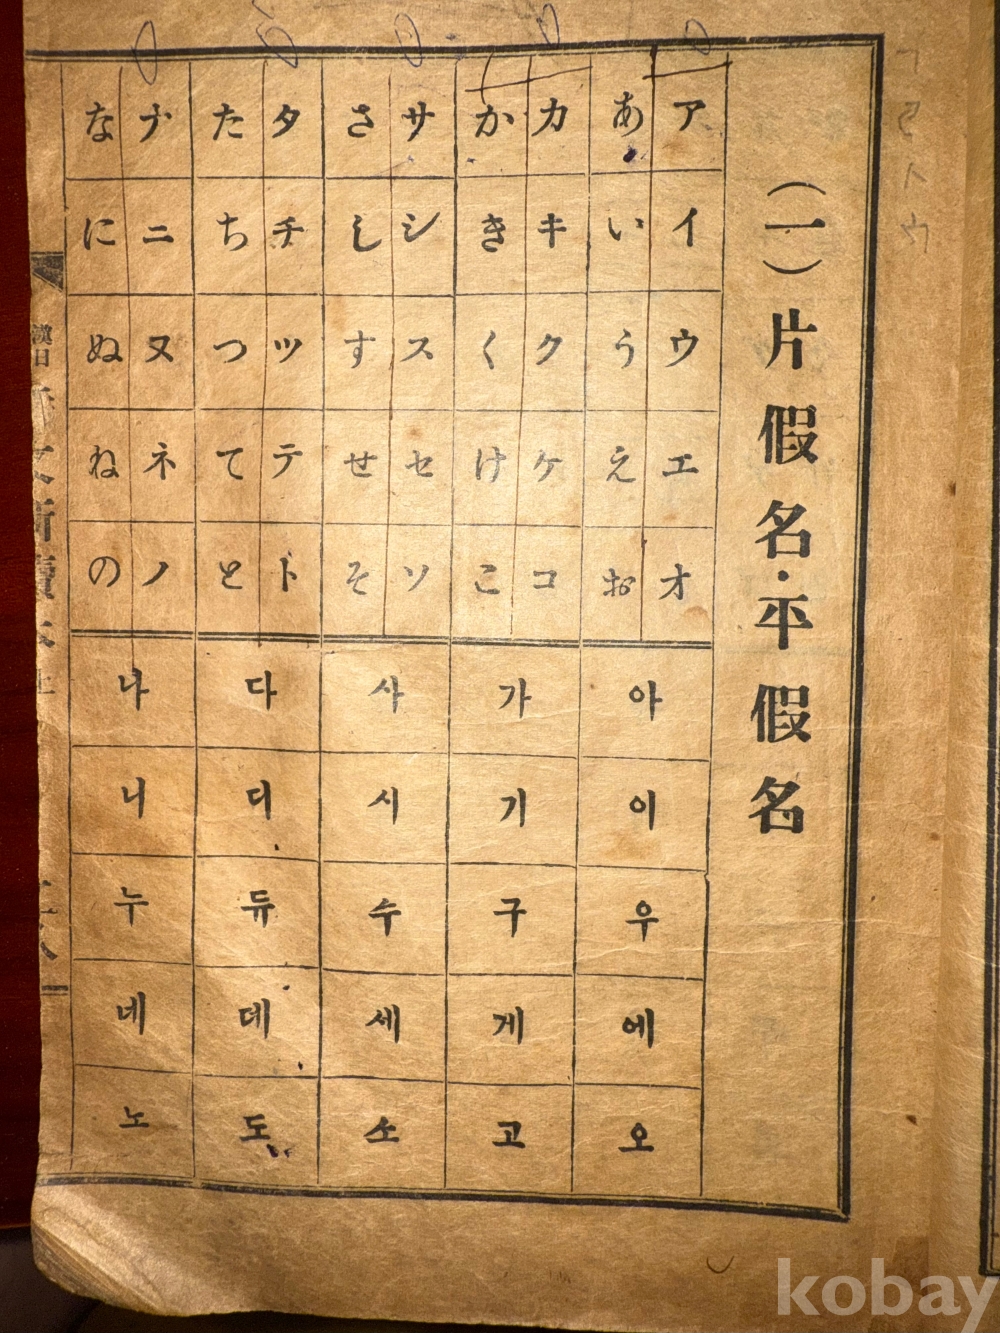 (一)片假名・平假名
アイウエオ
あいうえお
아이우에오
カキクケコ
かきくけこ
가기구게고
サシスセソ
さしすせそ
사시수세소
タチツテト
たちつてと
다디듀데도
ナニヌネノ
なにぬねの
나니누네노
漢日
kobay